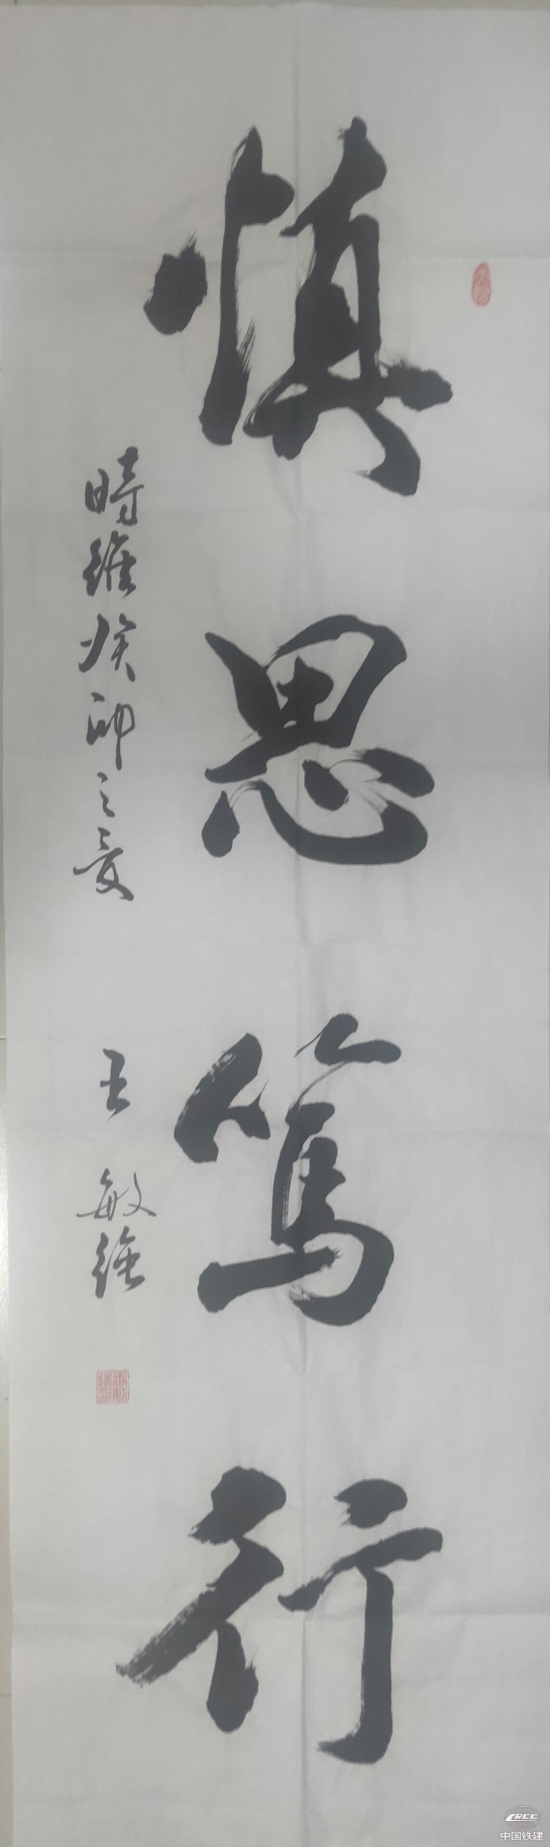 慎思笃行
時維癸卯之夏
王敏維
CRCC
中国铁建